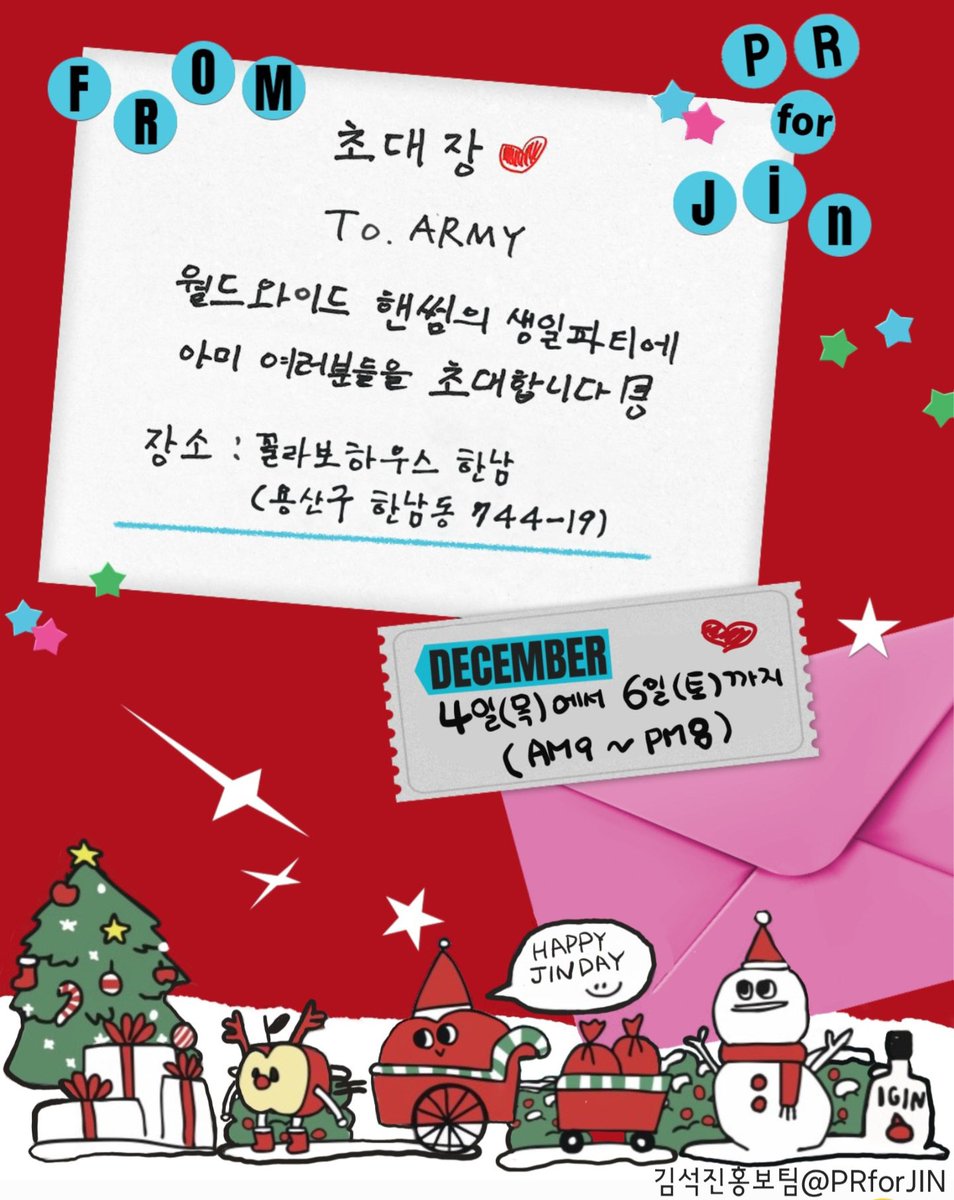 FROM
PR
for
Jin
초대장
To. ARMY
월드와이드 핸썸의 생일파티에
아미 여러분들을 초대합니다
장소 : 꼴라보하우스 한남
(용산구 한남동 744-19)
DECEMBER
4일(목)에서 6일(토)까지
(AM9 ~ PM8)
HAPPY
JINDAY
IGIN
김석진홍보팀@PRforJIN